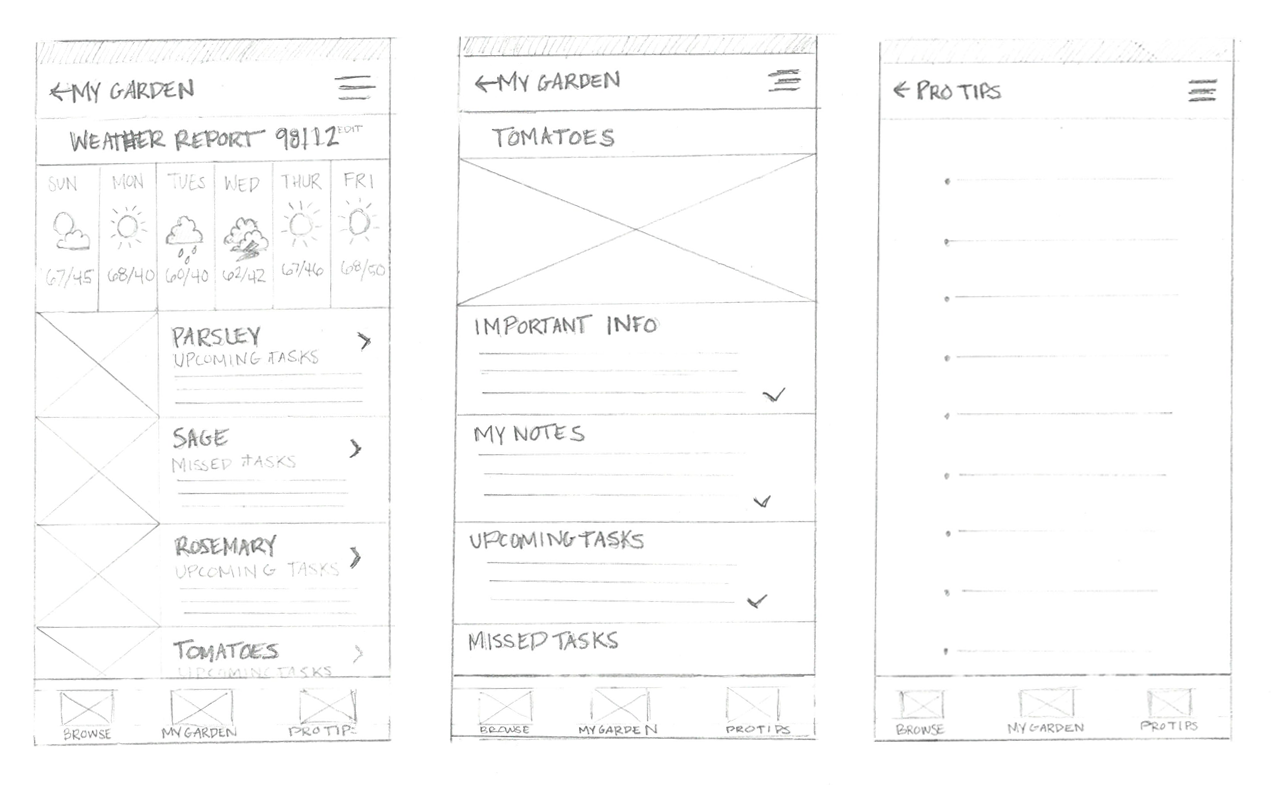 MY GARDEN
WEATHER REPORT 98112 EDIT
SUN MON TUES WED THUR FRI
67/45 68/40 60/40 62/42 67/46 68/50
PARSLEY
UPCOMING TASKS
SAGE
MISSED TASKS
ROSEMARY
UPCOMING TASKS
TOMATOES
UPCOMING TASKS
BROWSE MY GARDEN PRO TIPS
MY GARDEN
TOMATOES
IMPORTANT INFO
MY NOTES
UPCOMING TASKS
MISSED TASKS
BROWSE MY GARDEN PRO TIPS
PRO TIPS
BROWSE MY GARDEN PRO TIPS